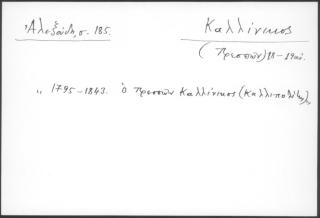 Ἀλεξούδη, σ. 185.
Καλλίνικος
(Πρεσπῶν) 18-19 αἰ.
„ 1795-1843. ὁ Πρεσπῶν Καλλίνικος (Καλλιπολίτης),